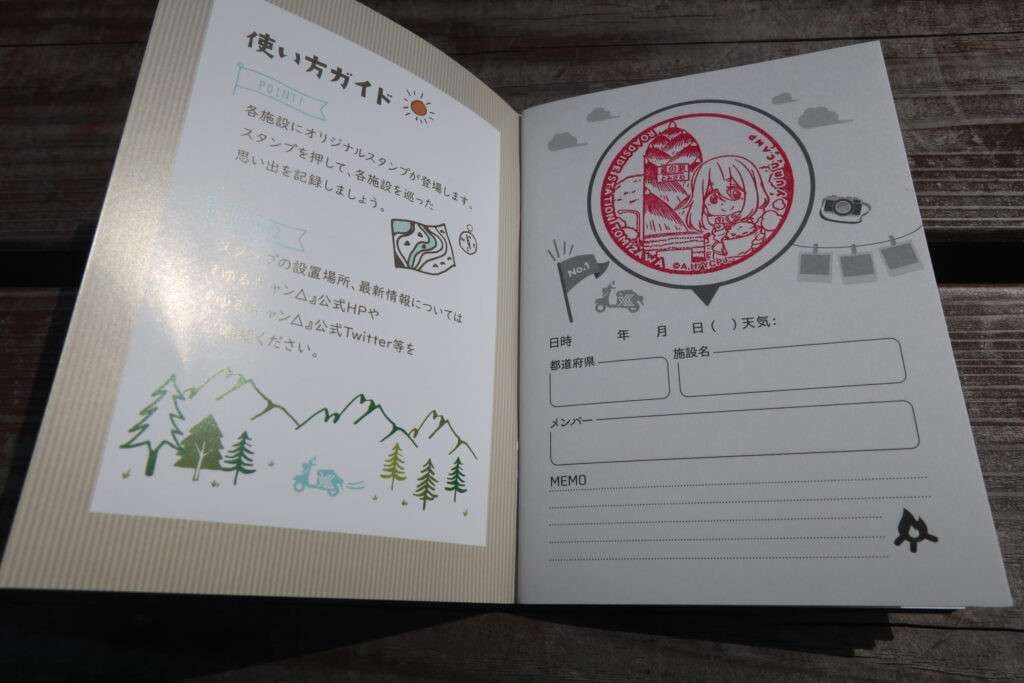 使い方ガイド
POINT1
各施設にオリジナルスタンプが登場します。
スタンプを押して、各施設を巡った
思い出を記録しましょう。
プの設置場所、最新情報については
ゆるキャン△』公式HPや
キャン△』公式Twitter等を
ください。
ROADSIDE STATION TOMIZAWA
YURUCAMP
No.1
日時 年 月 日( )天気:
都道府県 施設名
メンバー
MEMO